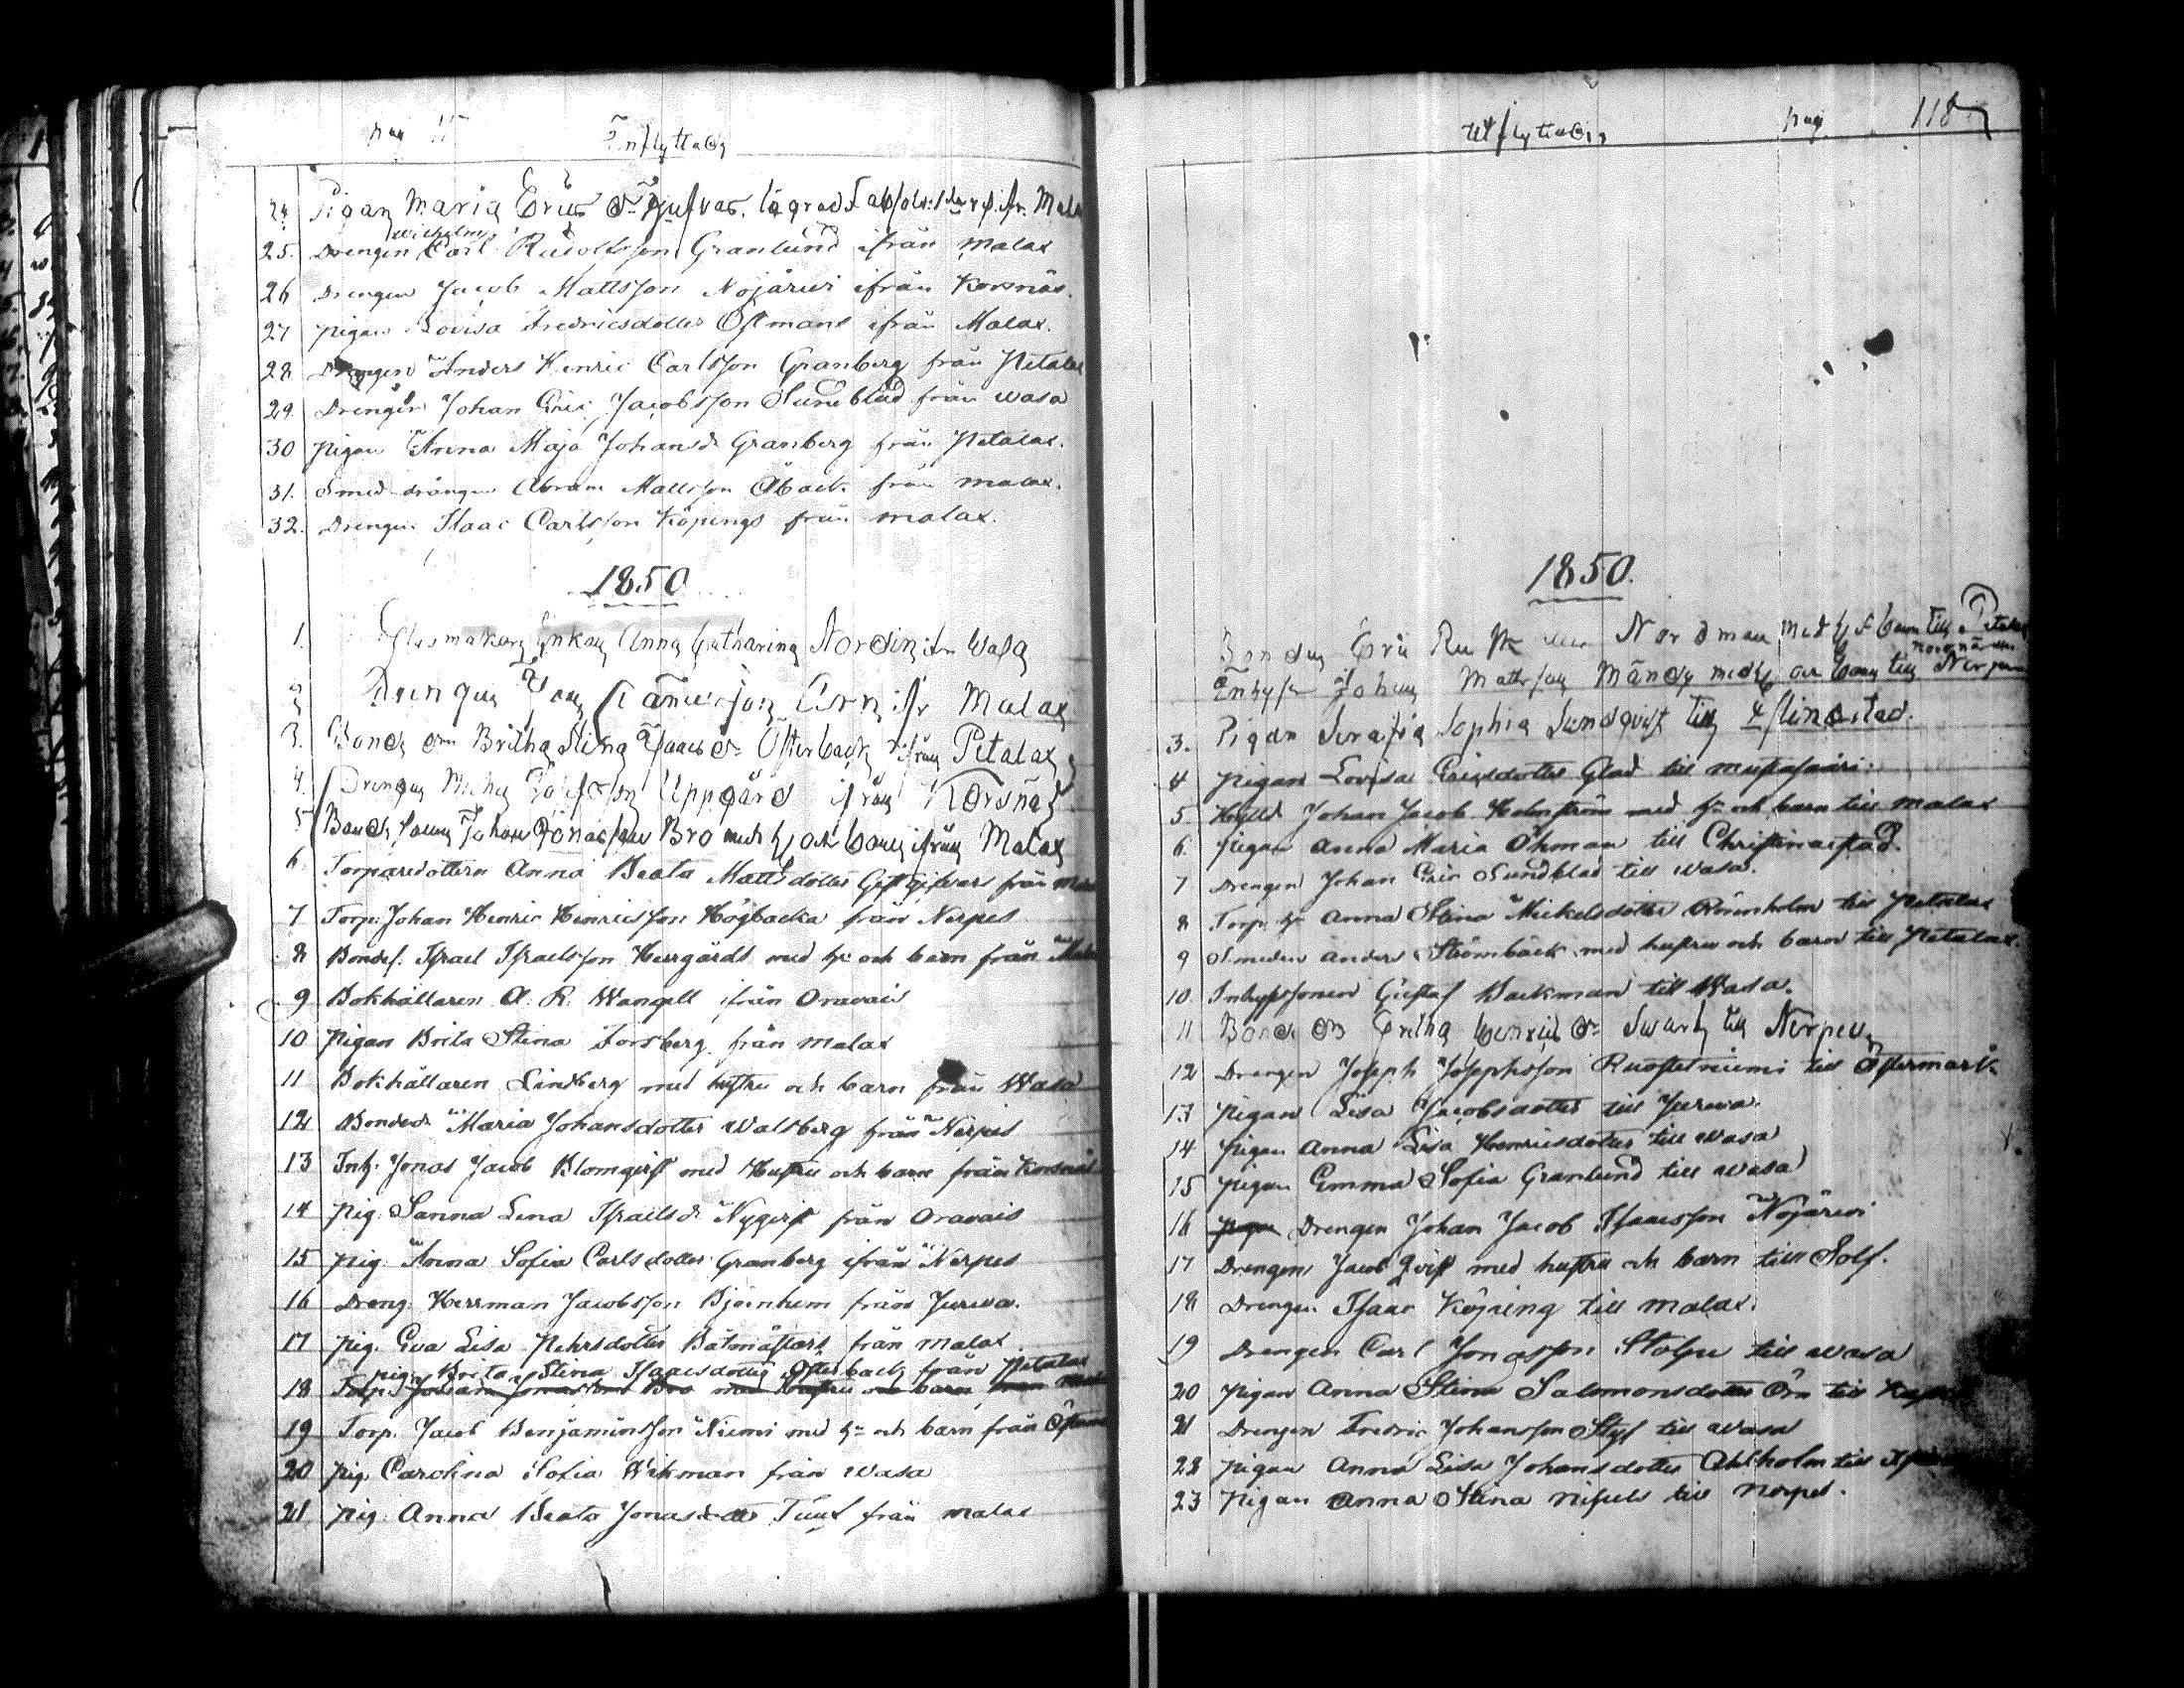 pag Inflyttade
24 Pigan Maria Erics dr
25. Drengen Carl Wilhelm Rudolfsson Granlund ifrån Malax
26 Drengen Jacob Mattsson Nojärvi ifrån Korsnäs.
27 pigan Lovisa Fredricsdotter Östmans ifrån Malax.
28 Drengen Anders Henric Carlsson Granberg från Petalax
29. Drengen Johan Eric Jacobsson Sundblad från Wasa
30 pigan Anna Maja Johansd. Granberg från Petalax.
31. Smed drängen Abram Mattsson Åback från Malax.
32. Drengen Isaac Carlsson Köpings från Malax.
1850
1. Glasmakare Enkan Anna Catharina Nordin ifr Wasa
2 Drengen ifr Malax
3. Bonde dn Britha Stina Isaacs dr Österback ifrån Petalax
4. Drengen Michel Uppgård ifrån Korsnäs
5 Bonde sonen Johan Jonasson Bro med h och barn ifrån Malax
6 Torparedottern Anna Beata Mattsdotter Gästgifvars från
7 Torp: Johan Henric Henricsson Högbacka från Nerpes
8 Bondes. Israel Israelsson Herrgårds med h: och barn från
9 Bokhållaren A. R. Wangell ifrån Oravais
10 pigan Brita Stina Forsberg från Malax
11 Bokhållaren Lindberg med hustru och barn från Wasa
12 Bonded: Maria Johansdotter Walsberg från Nerpes
13 Inh: Jonas Jacob Blomqvist med Hustru och barn från Korsnäs
14 pig: Sanna Lena Israelsdr Nyqvist från Oravais
15 pig. Anna Sofia Carlsdotter Granberg ifrån Nerpes
16 Dreng. Herrman Jacobsson Björnhem från Jurva.
17 pig. Eva Lisa Pehrsdotter Båtmästars från Malax
pig. Brita Stina Isaacsdotter Österback från Petalax
18 Torp. Johan Jonasson Bro med hustru och barn från
19 Torp. Jacob Benjaminsson Niemi med h: och barn från
20 pig Carolina Sofia Wikman från Wasa
21 pig: Anna Beata Jonasdotter Tuus från Malax
Utflyttade pag. 118
1850.
Bonden Eric Nordman med h och barn till Petalax
Inhyses Johan Mattsson Mändy med h och barn till
3. Pigan Serafia Sophia Sundqvist till
4 pigan Lovisa Ericsdotter Glad till Mustasaari.
5 Johan Jacob Holmström med h: och barn till Malax
6. pigan Anna Maria Öhman till Christinæstad.
7 Drengen Johan Eric Sundblad till Wasa.
8 Torp. h: Anna Stina Mickelsdotter Rönnholm till Petalax
9 Smeden Anders Strömbäck med hustru och barn till Petalax.
10. Inhyssonen Gustaf Backman till Wasa.
11 Bonde dn Britha Henrics dr Svartz till Nerpes
12 Drengen Joseph Josephsson till Östermark
13 pigan Lisa Jacobsdotter till Jurva.
14 pigan Anna Lisa Henricsdotter till Wasa
15 pigan Emma Sofia Granlund till Wasa
16 pigan Drengen Johan Jacob Isaacsson Nöjärvi
17 Drengen Jacob Qvist med hustru och barn till Solf.
18 Drengen Isaac Köping till Malax.
19 Drengen Carl Jonasson Stolpe till Wasa
20 pigan Anna Stina Salomonsdotter Örn till
21 Drengen Fredric Johansson Styf till Wasa
22 pigan Anna Lisa Johansdotter Ahlholm till
23 pigan Anna Stina till Nerpes.